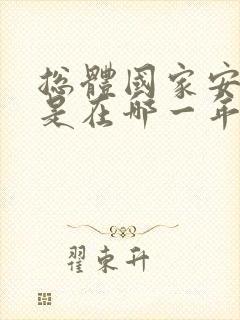 总體國家安
是在哪一年
翟東升